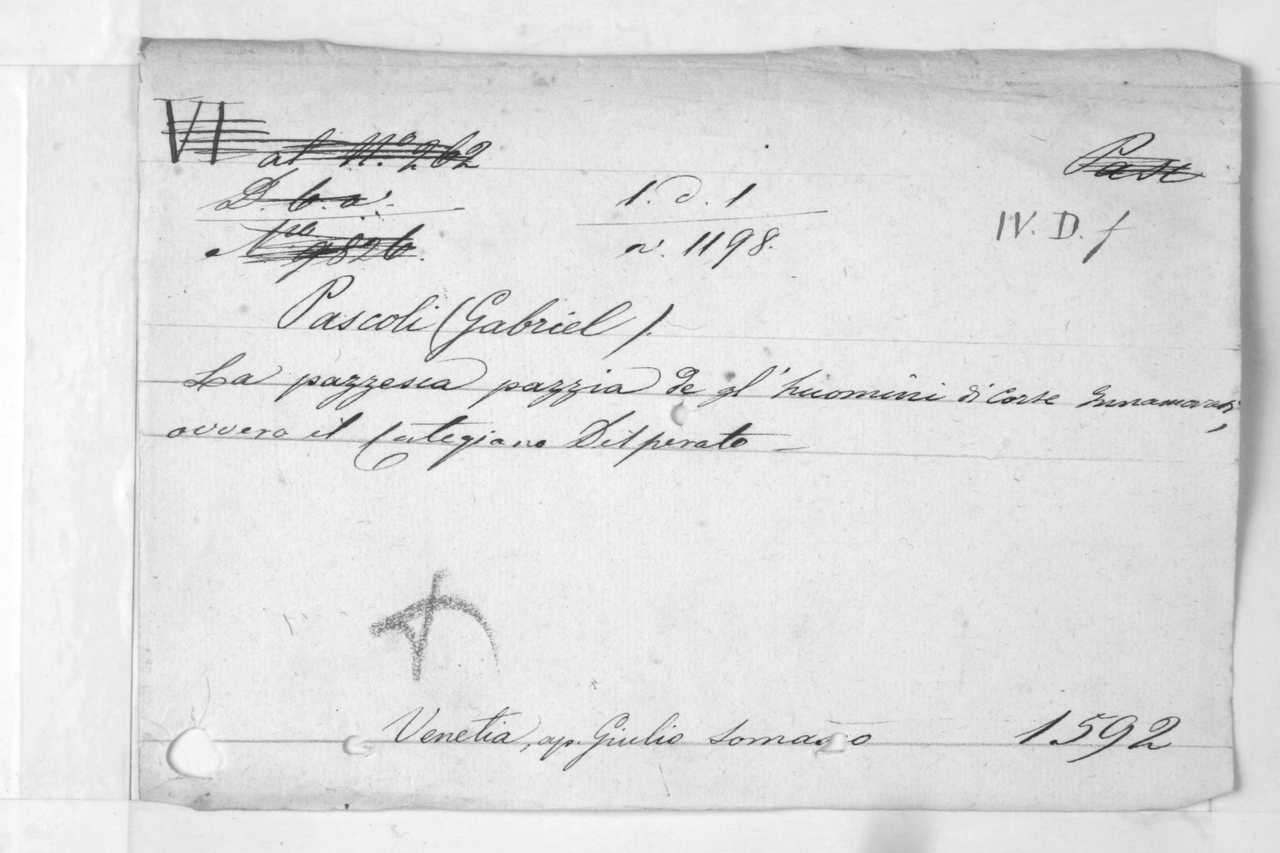 VI al N.º 262
Past
D. b. a.
1. d. 1
IV. D. f
Nro 9826.
n. 1198.
Pascoli (Gabriel).
La pazzesca pazzia de gl' huomini di Corte Innamorati,
ovvero il Cortegiano Disperato
Venetia, ap. Giulio Somasco
1592